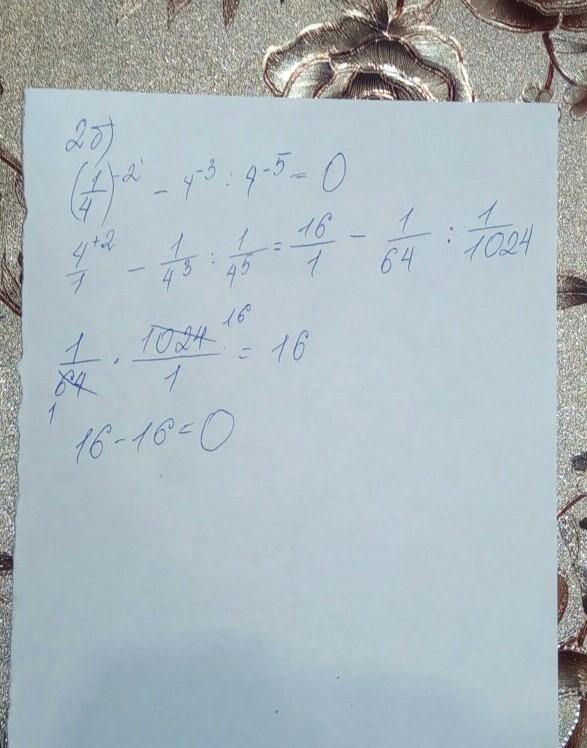 2б)
(1/4)^-2 - 4^-3 : 4^-5 = 0
4^+2/1 - 1/4^3 : 1/4^5 = 16/1 - 1/64 : 1/1024
1/64 1 · 1024 16/1 = 16
16 - 16 = 0